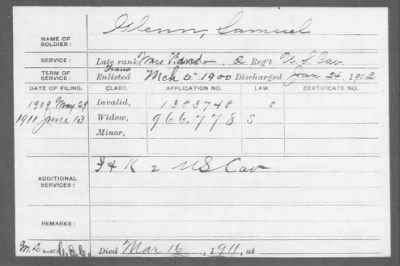 NAME OF SOLDIER: Glenn, Samuel
SERVICE: Late rank Band Reg't U.S. Cav.
TERM OF SERVICE: Enlisted Mch 5 1900 Discharged Jan 24, 1902
DATE OF FILING. CLASS. APPLICATION NO. LAW. CERTIFICATE NO.
1909 May 29 Invalid, 1383748
1911 June 13 Widow, 966.778 S
Minor,
ADDITIONAL SERVICES: I & K 2 US Cav
REMARKS:
Died Mar 16, 1911, at